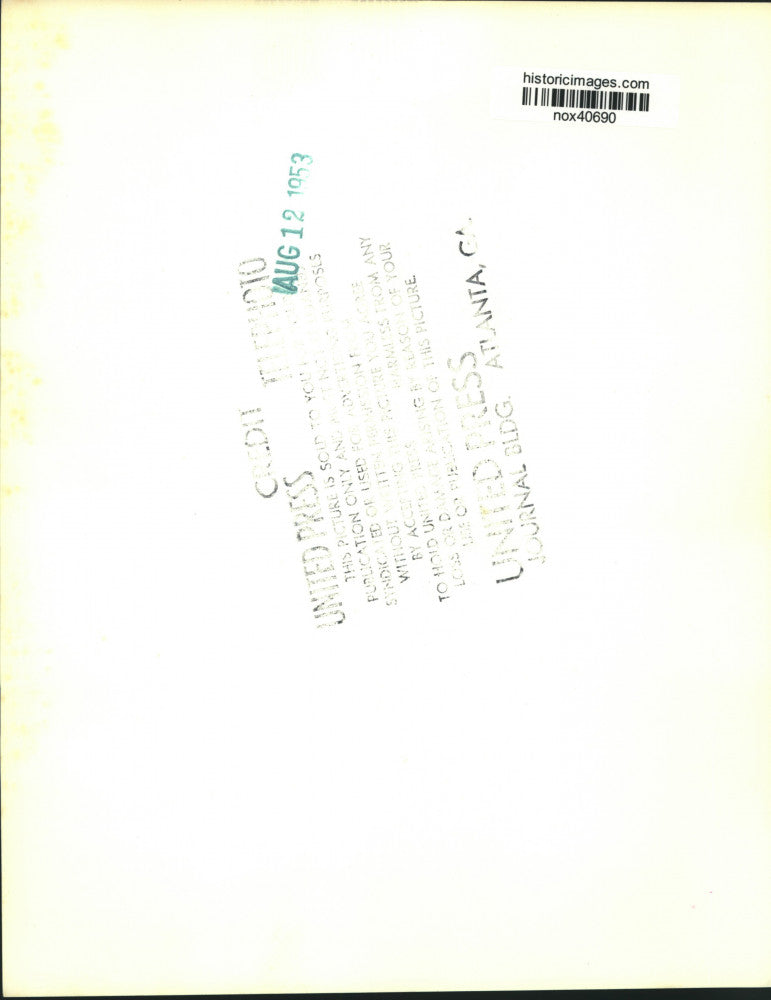 historicimages.com
nox40690
AUG 12 1953
CREDIT TELEPHOTO
UNITED PRESS
THIS PICTURE IS SOLD TO YOU
PUBLICATION ONLY AND
SYNDICATED OR USED FOR
WITHOUT
BY ACCEPTING THIS PICTURE YOU AGREE
TO HOLD UNITED HARMLESS FROM ANY
LOSS OR DAMAGE ARISING BY REASON OF YOUR
USE OR PUBLICATION OF THIS PICTURE.
UNITED PRESS
JOURNAL BLDG. ATLANTA, GA.